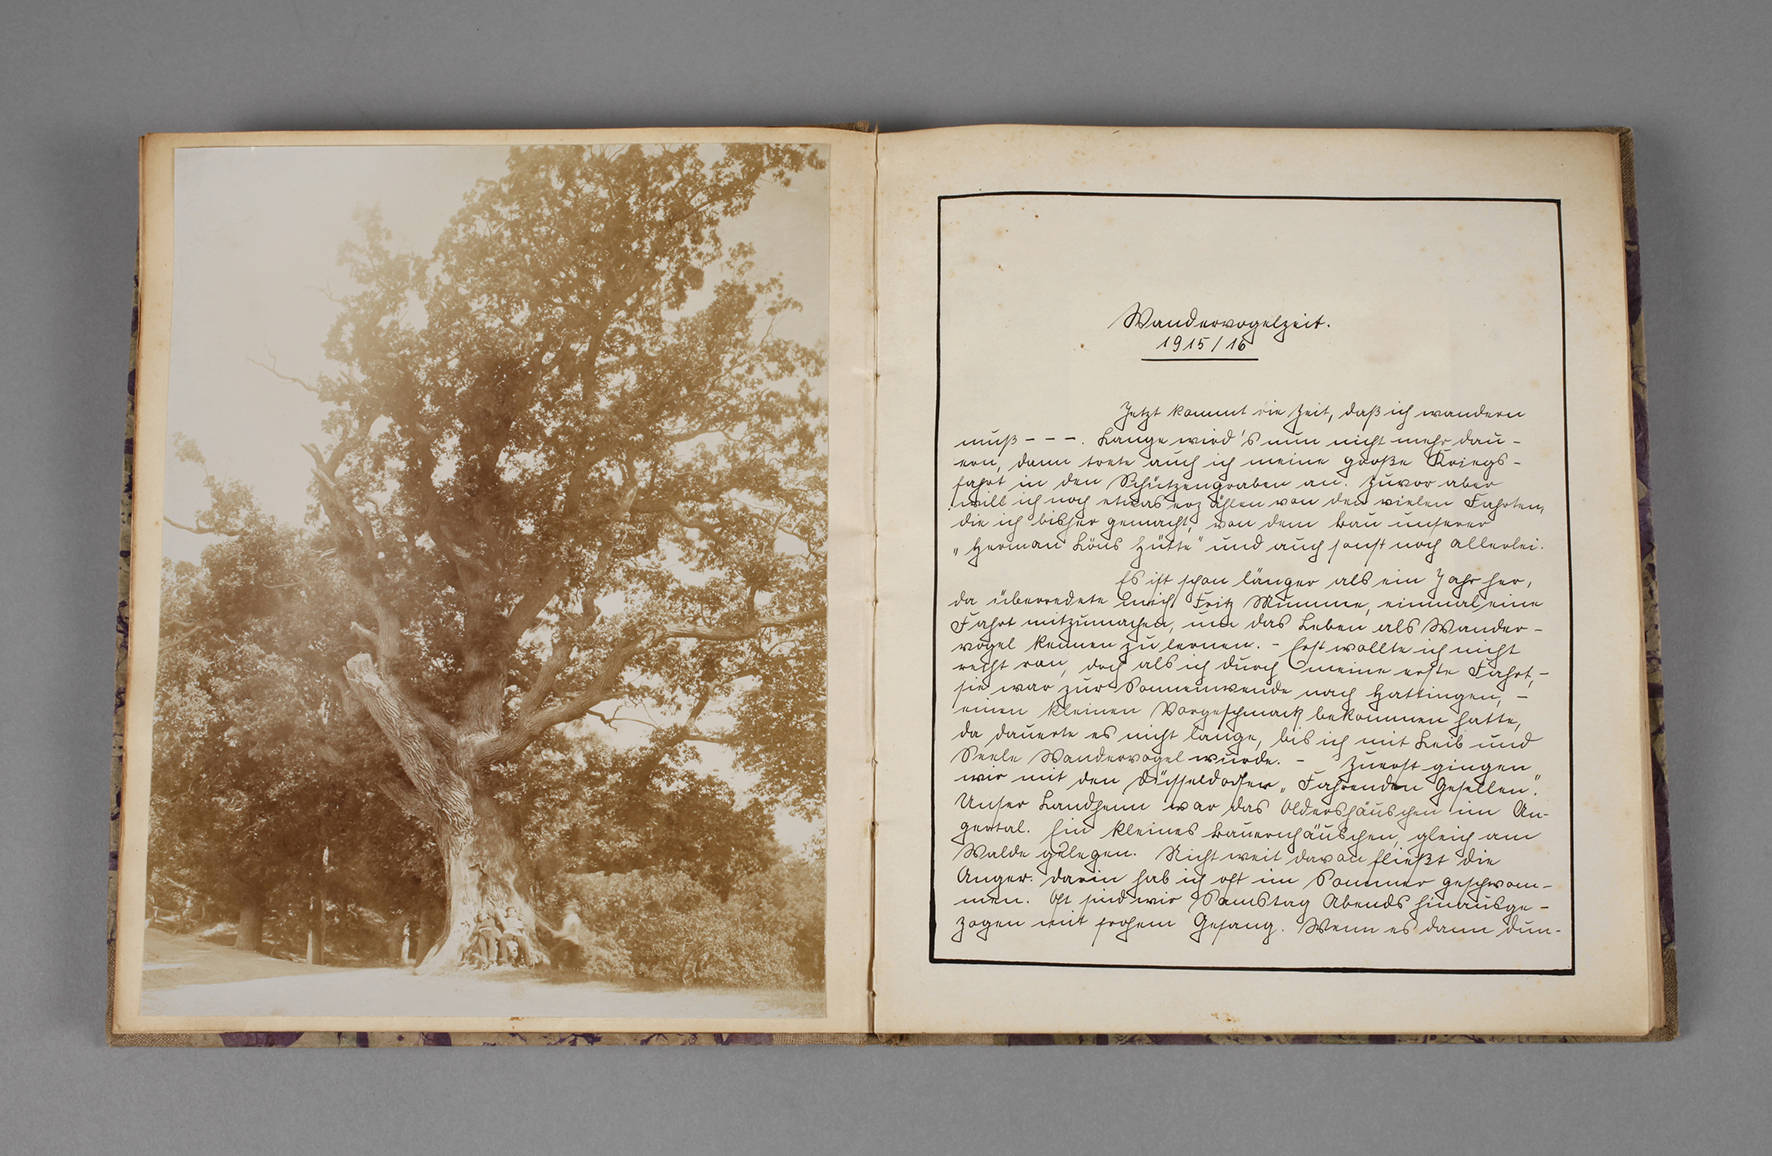 Wandervogelzeit.
1915/16
Jetzt kommt die Zeit, daß ich wandern
muß - - -. Lange wird's nun nicht mehr dau-
ern, dann trete auch ich meine große Kriegs-
fahrt in den Schützengraben an. Zuvor aber
will ich noch etwas erzählen von den vielen Fahrten,
die ich bisher gemacht, von dem Bau unserer
„Herman Löns Hütte" und auch sonst noch allerlei.
Es ist schon länger als ein Jahr her,
da überredete mich Fritz Mumme, einmal eine
Fahrt mitzumachen, um das Leben als Wander-
vogel kennen zu lernen. - Erst wollte ich nicht
recht ran, doch als ich durch meine erste Fahrt, -
sie war zur Sonnenwende nach Hattingen, -
einen kleinen Vorgeschmack bekommen hatte,
da dauerte es nicht lange, bis ich mit Leib und
Seele Wandervogel wurde. - Zuerst gingen
wir mit den Düsseldorfer „Fahrenden Gesellen".
Unser Landheim war das Oldershäuschen im An-
gertal. Ein kleines Bauernhäuschen, gleich am
Walde gelegen. Nicht weit davon fließt die
Anger. Darin hab ich oft im Sommer geschwom-
men. Oft sind wir Samstag Abends hinausge-
zogen mit frohem Gesang. Wenn es dann dun-